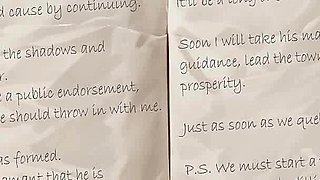 d cause by continuing.
the shadows and
r.
e a public endorsement,
e should throw in with me.
as formed.
amant that he is
It'll be a long
Soon I will take his ma
guidance, lead the town
prosperity.
Just as soon as we quel
P.S. We must start a